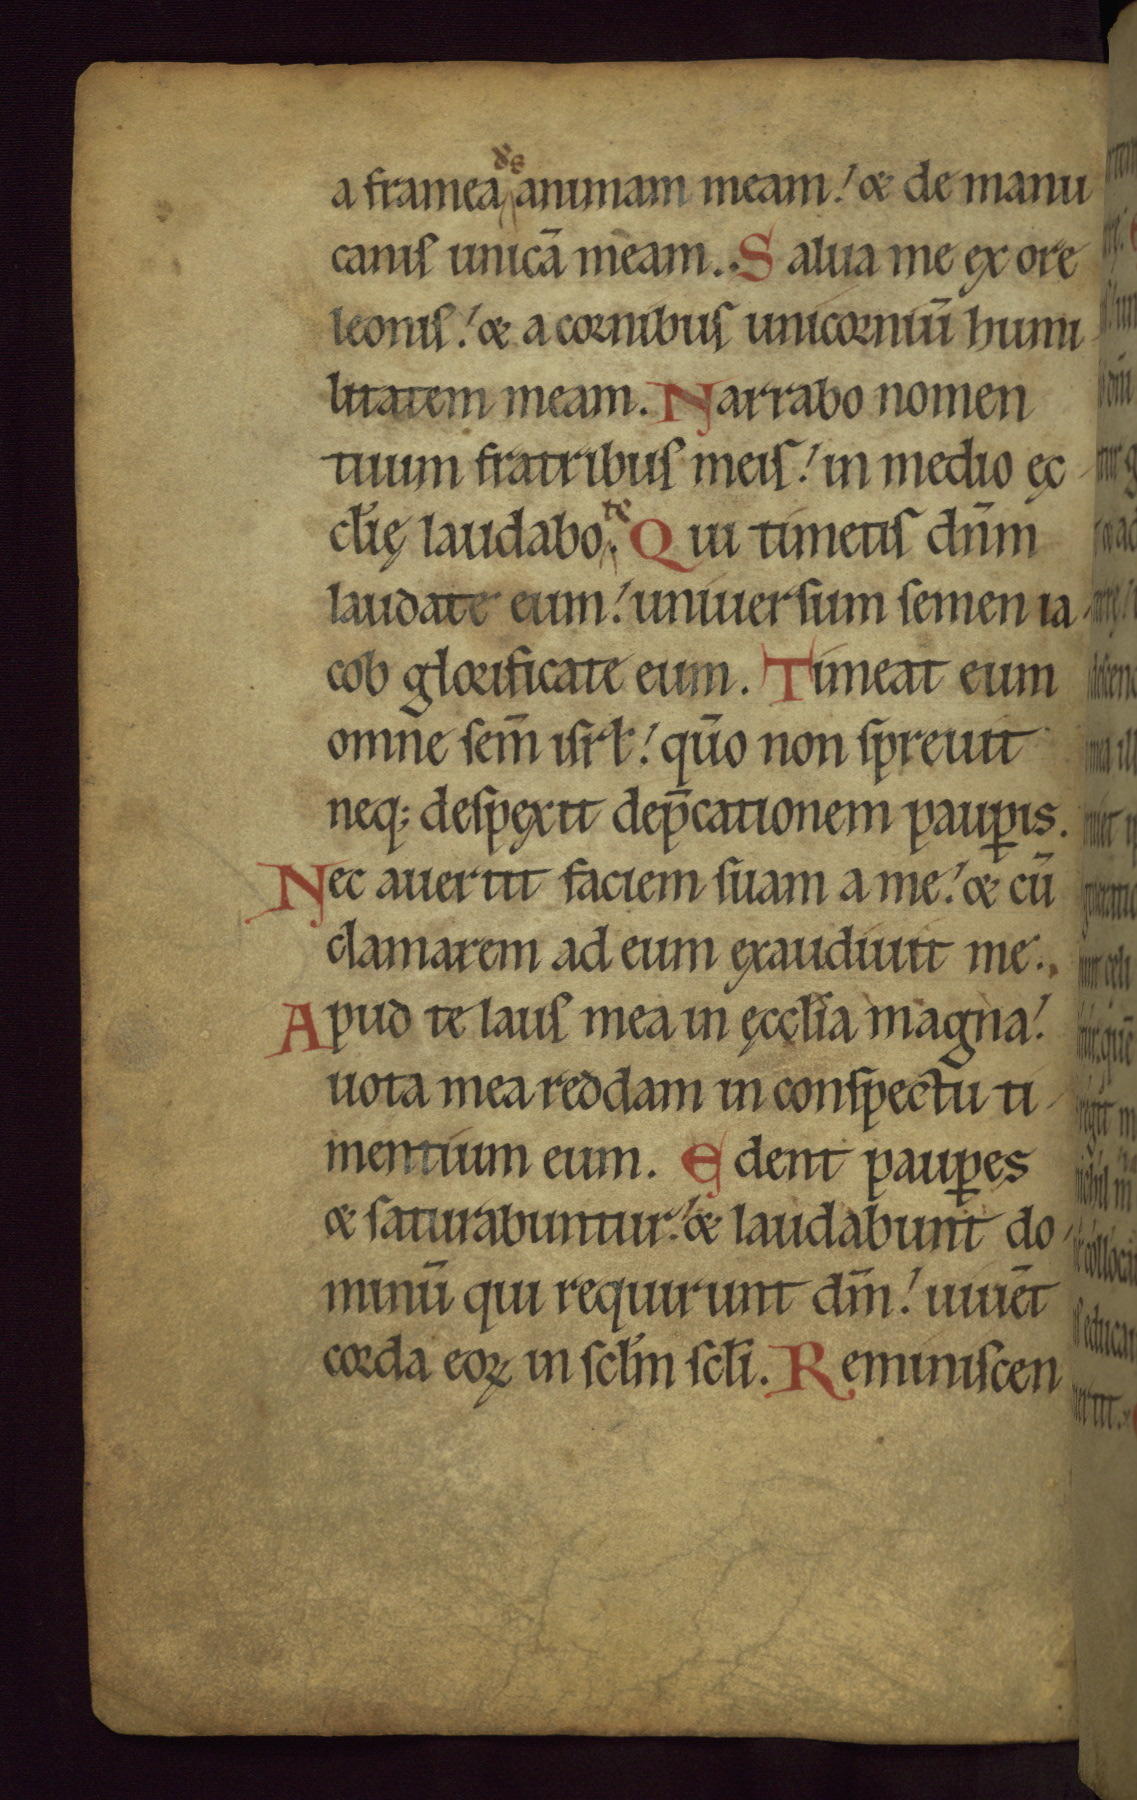 a framea ds animam meam! & de manu
canis unicā meam. Salua me ex ore
leonis! & a cornibus unicorniū humi
litatem meam. Narrabo nomen
tuum fratribus meis! in medio ęc
cłię laudabo te. Qui timetis dn̄m
laudate eum! uniuersum semen ia
cob glorificate eum. Timeat eum
omne sem̄ isrł! qūo non spreuit
neq; despexit dep̄cationem paup̱is.
Nec auertit faciem suam a me! & cū
clamarem ad eum exaudiuit me.
Apud te laus mea in ęccłia magna!
uota mea reddam in conspectu ti
mentium eum. Edent paup̱es
& saturabuntur! & laudabunt do
minū qui requirunt dm̄! uiuēt
corda eoꝝ in scłm scłi. Reminiscen